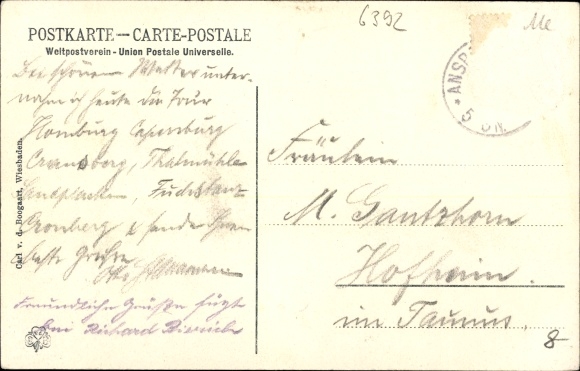 6392
Me
POSTKARTE — CARTE-POSTALE
Weltpostverein - Union Postale Universelle.
ANSP
5
Bei schönem Wetter unter-
nahm ich heute die Tour
Homburg
Cransberg, Thalmühle
Sandplacken, Fuchstanz
Cronberg & sende Ihnen
beste Grüße
Freundliche Grüße fügt
bei Richard
Carl v. d. Boogaart, Wiesbaden.
Fräulein
M. Gantzhorn
Hofheim
im Taunus.
8